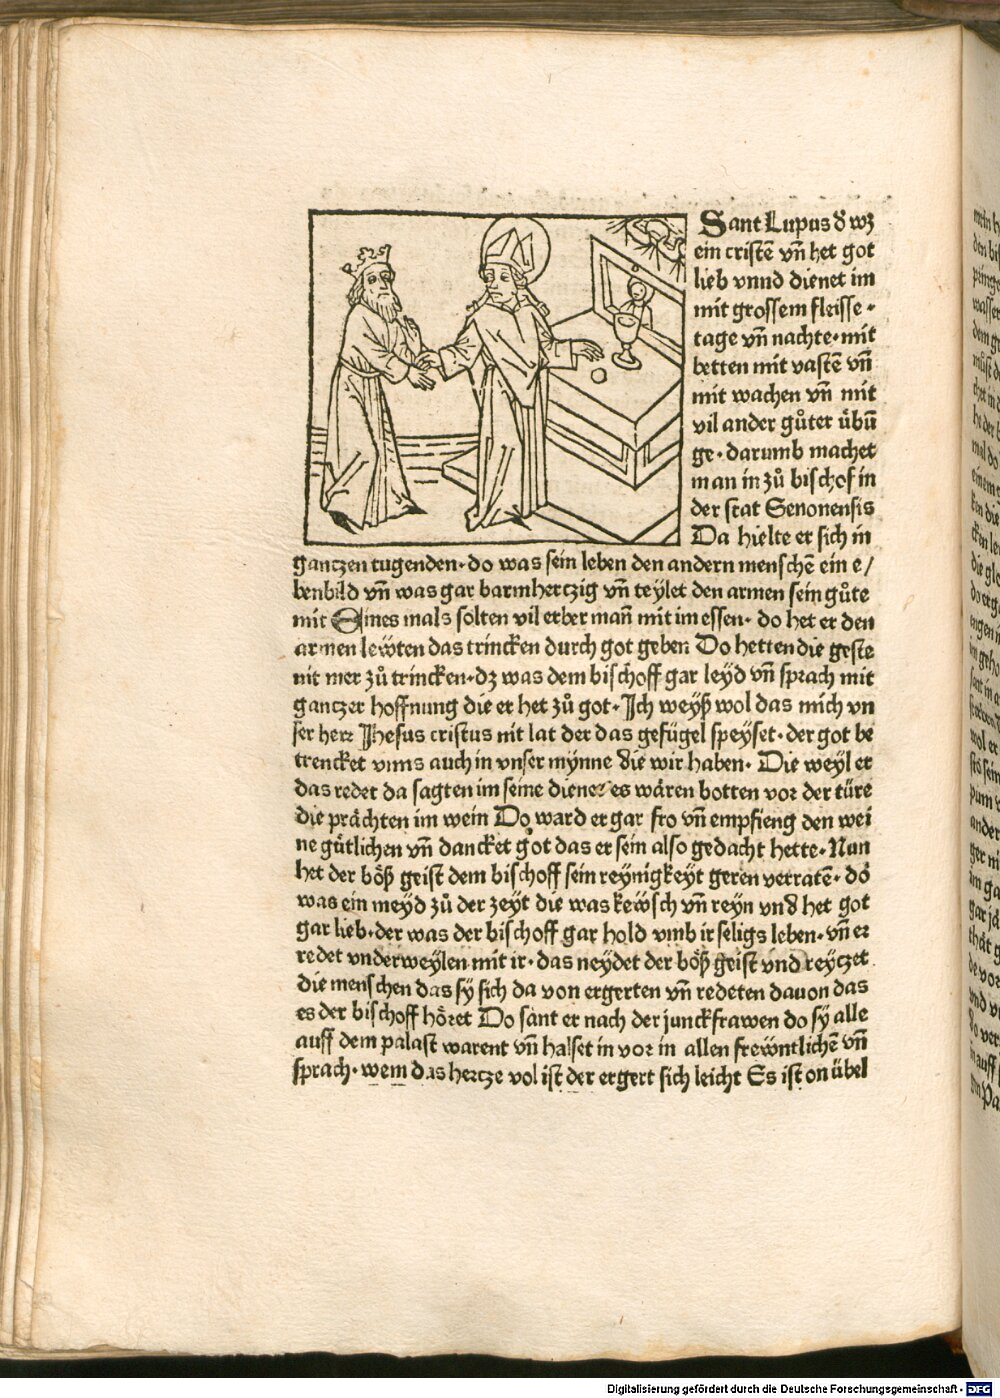 Sant Lupus d̕ wz
ein cristē vn̄ het got
lieb vnnd dienet im
mit grossem fleisse ·
tage vn̄ nachte · mit
betten mit vastē vn̄
mit wachen vn̄ mit
vil ander gůter uͤbū
ge · darumb machet
man in zů bischof in
der stat Senonensis
Da hielte er sich in
gantzen tugenden · do was sein leben den andern menschē ein e/
benbild vn̄ was gar barmhertzig vn̄ teylet den armen sein gůte
mit Eines mals solten vil erber man̄ mit im essen · do het er den
armen lewten das trincken durch got geben Do hetten die geste
nit mer zů trincken · dz was dem bischoff gar leyd vn̄ sprach mit
gantzer hoffnung die er het zů got · Ich weyß wol das mich vn
ser herr Jhesus cristus nit lat der das gefügel speyset · der got be
trencket vnns auch in vnser mynne die wir haben · Die weyl er
das redet da sagten im seine diener es wären botten vor der türe
die prächten im wein Do ward er gar fro vn̄ empfieng den wei
ne gütlichen vn̄ dancket got das er sein also gedacht hette · Nun
het der böß geist dem bischoff sein reynigkeyt geren verratē · do
was ein meyd zů der zeyt die was kewsch vn̄ reyn vnd̕ het got
gar lieb · der was der bischoff gar hold vmb ir seligs leben · vn̄ er
redet vnderweylen mit ir · das neydet der böß geist vnd reyczet
die menschen das sy sich da von ergerten vn̄ redeten dauon das
es der bischoff höret Do sant er nach der junckfrawen do sy alle
auff dem palast warent vn̄ halset in vor in allen frewntlichē vn̄
sprach · wem das hertze vol ist der ergert sich leicht Es ist on übel
Digitalisierung gefördert durch die Deutsche Forschungsgemeinschaft - DFG